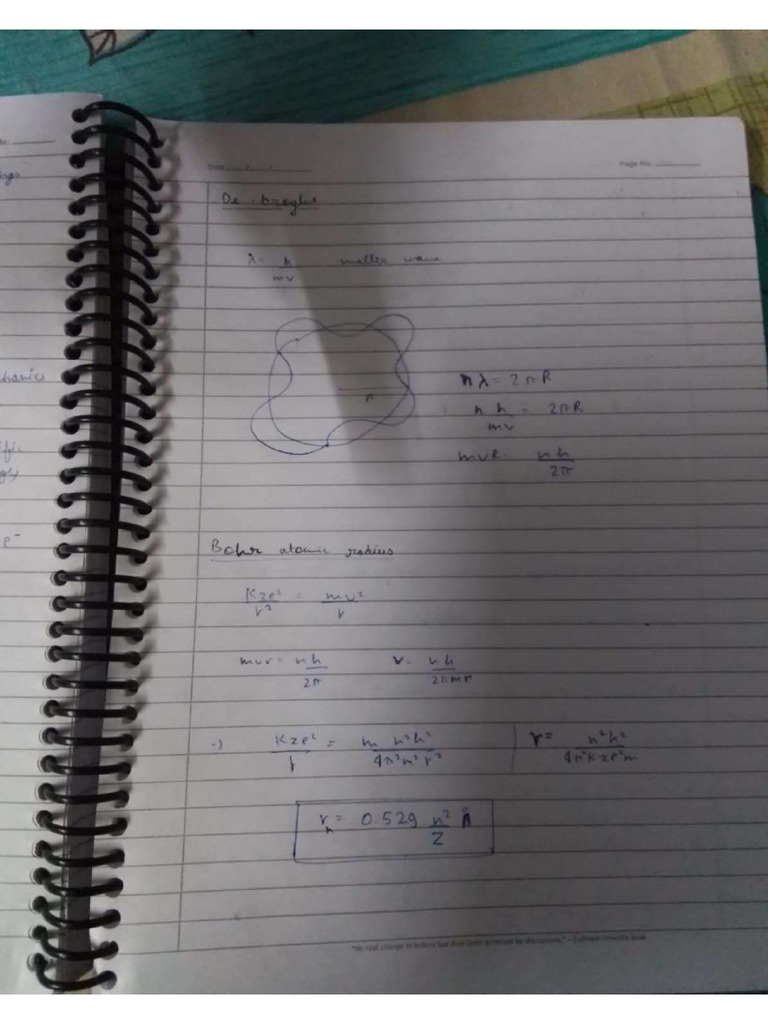 Date
Page No.
De-broglie
λ = h/mv matter wave
r
nλ = 2πR
n h/mv = 2πR
mvR = nh/2π
Bohr atomic radius
Kze²/r² = mv²/r
mvr = nh/2π v = nh/2πmr
Kze²/r = m n²h²/4π²m²r² r = n²h²/4π²Kze²m
rₙ = 0.529 n²/Z Å
hanics
e⁻